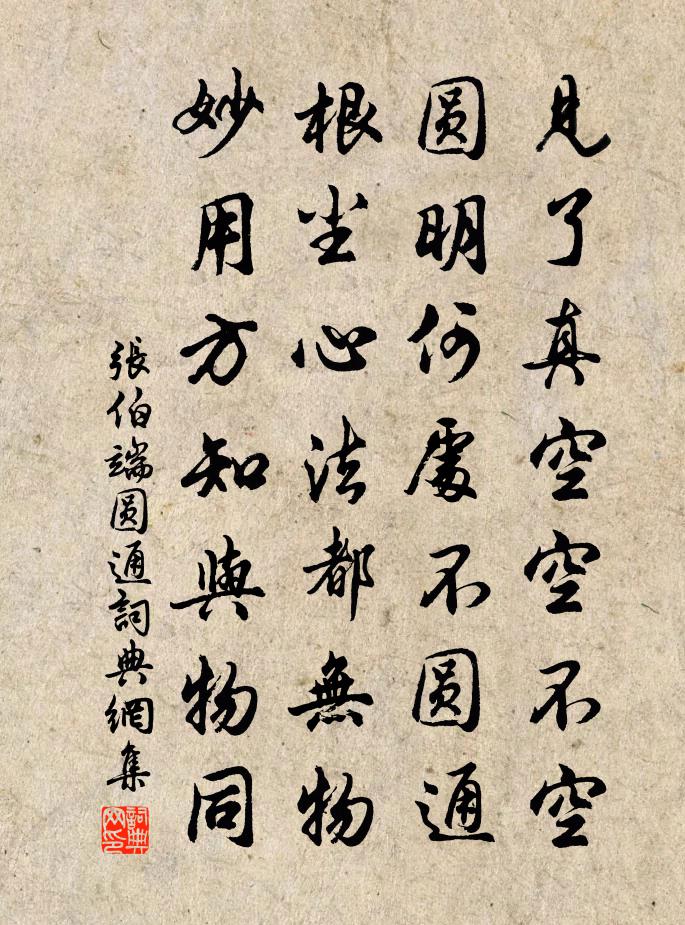 見了真空空不空
圓明何處不圓通
根塵心法都無物
妙用方知與物同
張伯端圓通詞典網集
詞典网印